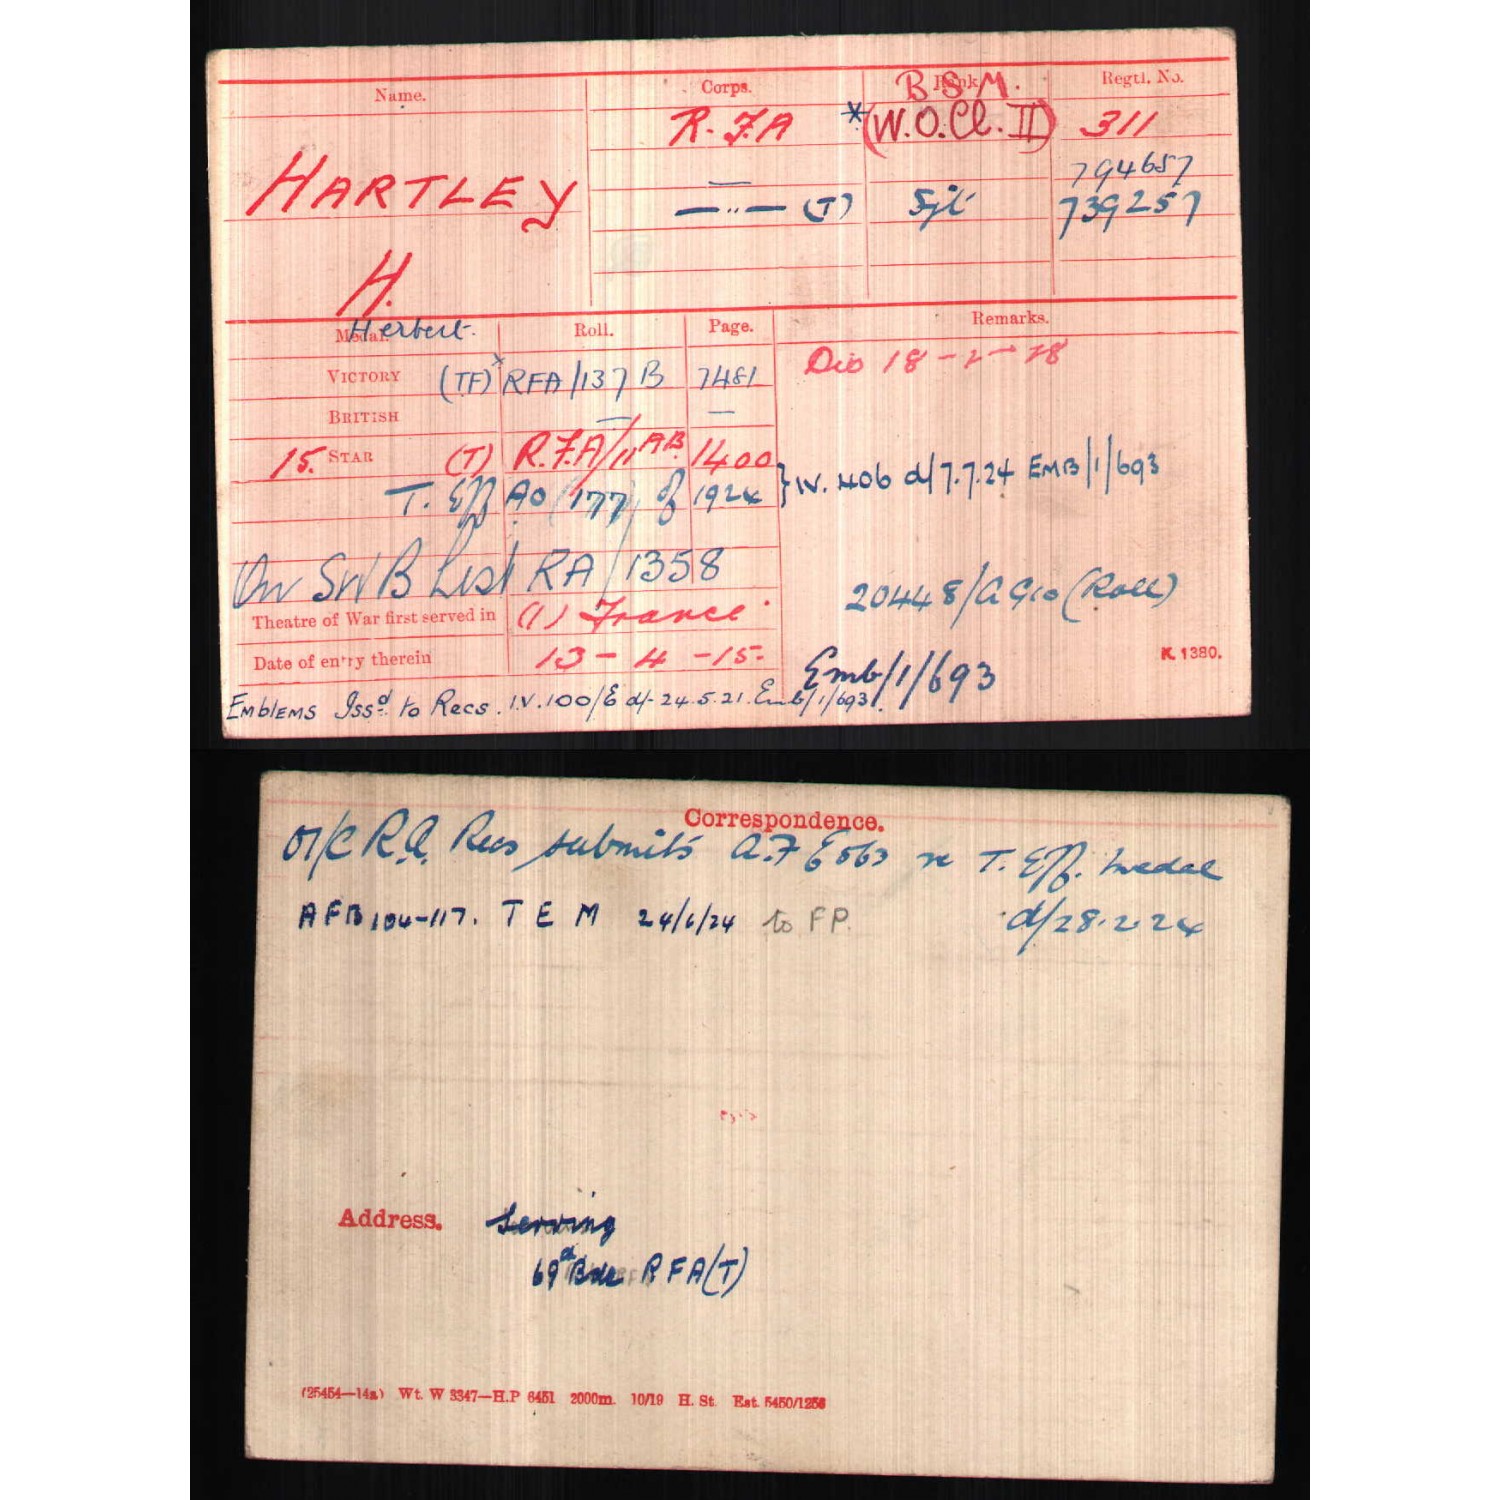 Name. Corps. Rank. Regtl. No.
B S M.
HARTLEY R. F. A * (W.O. Cl. II) 311
— 794657
— " — (T) Sjt 739257
H.
Herbert.
Medal. Roll. Page. Remarks.
VICTORY (TF)* RFA/137 B 7481 Dis 18-2-18
BRITISH — —
15. STAR (T) R.F.A/11 AB. 1400
T. Eff AO (177) of 1924 } IV. 406 d/7.7.24 EMB/1/693
On SWB List RA/1358
20448/Adjo (Roll)
Theatre of War first served in (1) France.
Date of entry therein 13 - 4 - 15-
K. 1380.
Emb/1/693
EMBLEMS Issd. to Recs. I.V. 100/E d/- 24.5.21. Emb/1/693.
Correspondence.
O/C R.A. Recs submits A.F E563 re T. Eff. medal
d/28.2.24
AFB104-117. T E M 24/6/24 to FP.
Address. Serving
69d Bde R F A (T)
(25454—14a) Wt. W 3347—H.P 6451 2000m. 10/19 H. St. Est. 5450/1256